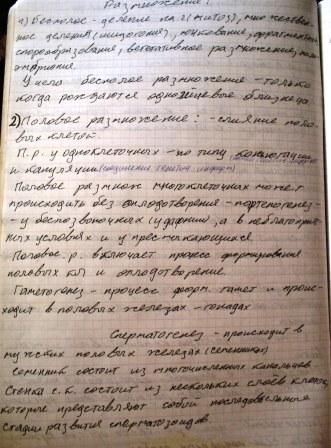 Размножение:
1) Бесполое - деление на 2 (митоз), множествен-
ное деление (шизогония), почкование, фрагментация
спорообразование, вегетативное размножение, поли-
эмбриония.
У чело бесполое размножение - только
когда рождаются однояйцевые близнецы
2) Половое размножение: - слияние поло-
вых клеток.
П.р. у одноклеточных - по типу конъюгации
и копуляции
Половое размнож многоклеточных может
происходить без оплодотворения - партеногенез -
- у беспозвоночных (у дафнии), а в неблагоприят-
ных условиях и у пресмыкающихся.
Половое р. включает процесс формирования
половых кл и оплодотворение.
Гаметогенез - процесс форм. гамет и проис-
ходит в половых железах - гонадах
Сперматогенез - происходит в
мужских половых железах (семенники)
семенник состоит из многочисленных канальцев
Стенка с.к. состоит из нескольких слоев клеток,
которые представляют собой последовательные
стадии развития сперматозоидов